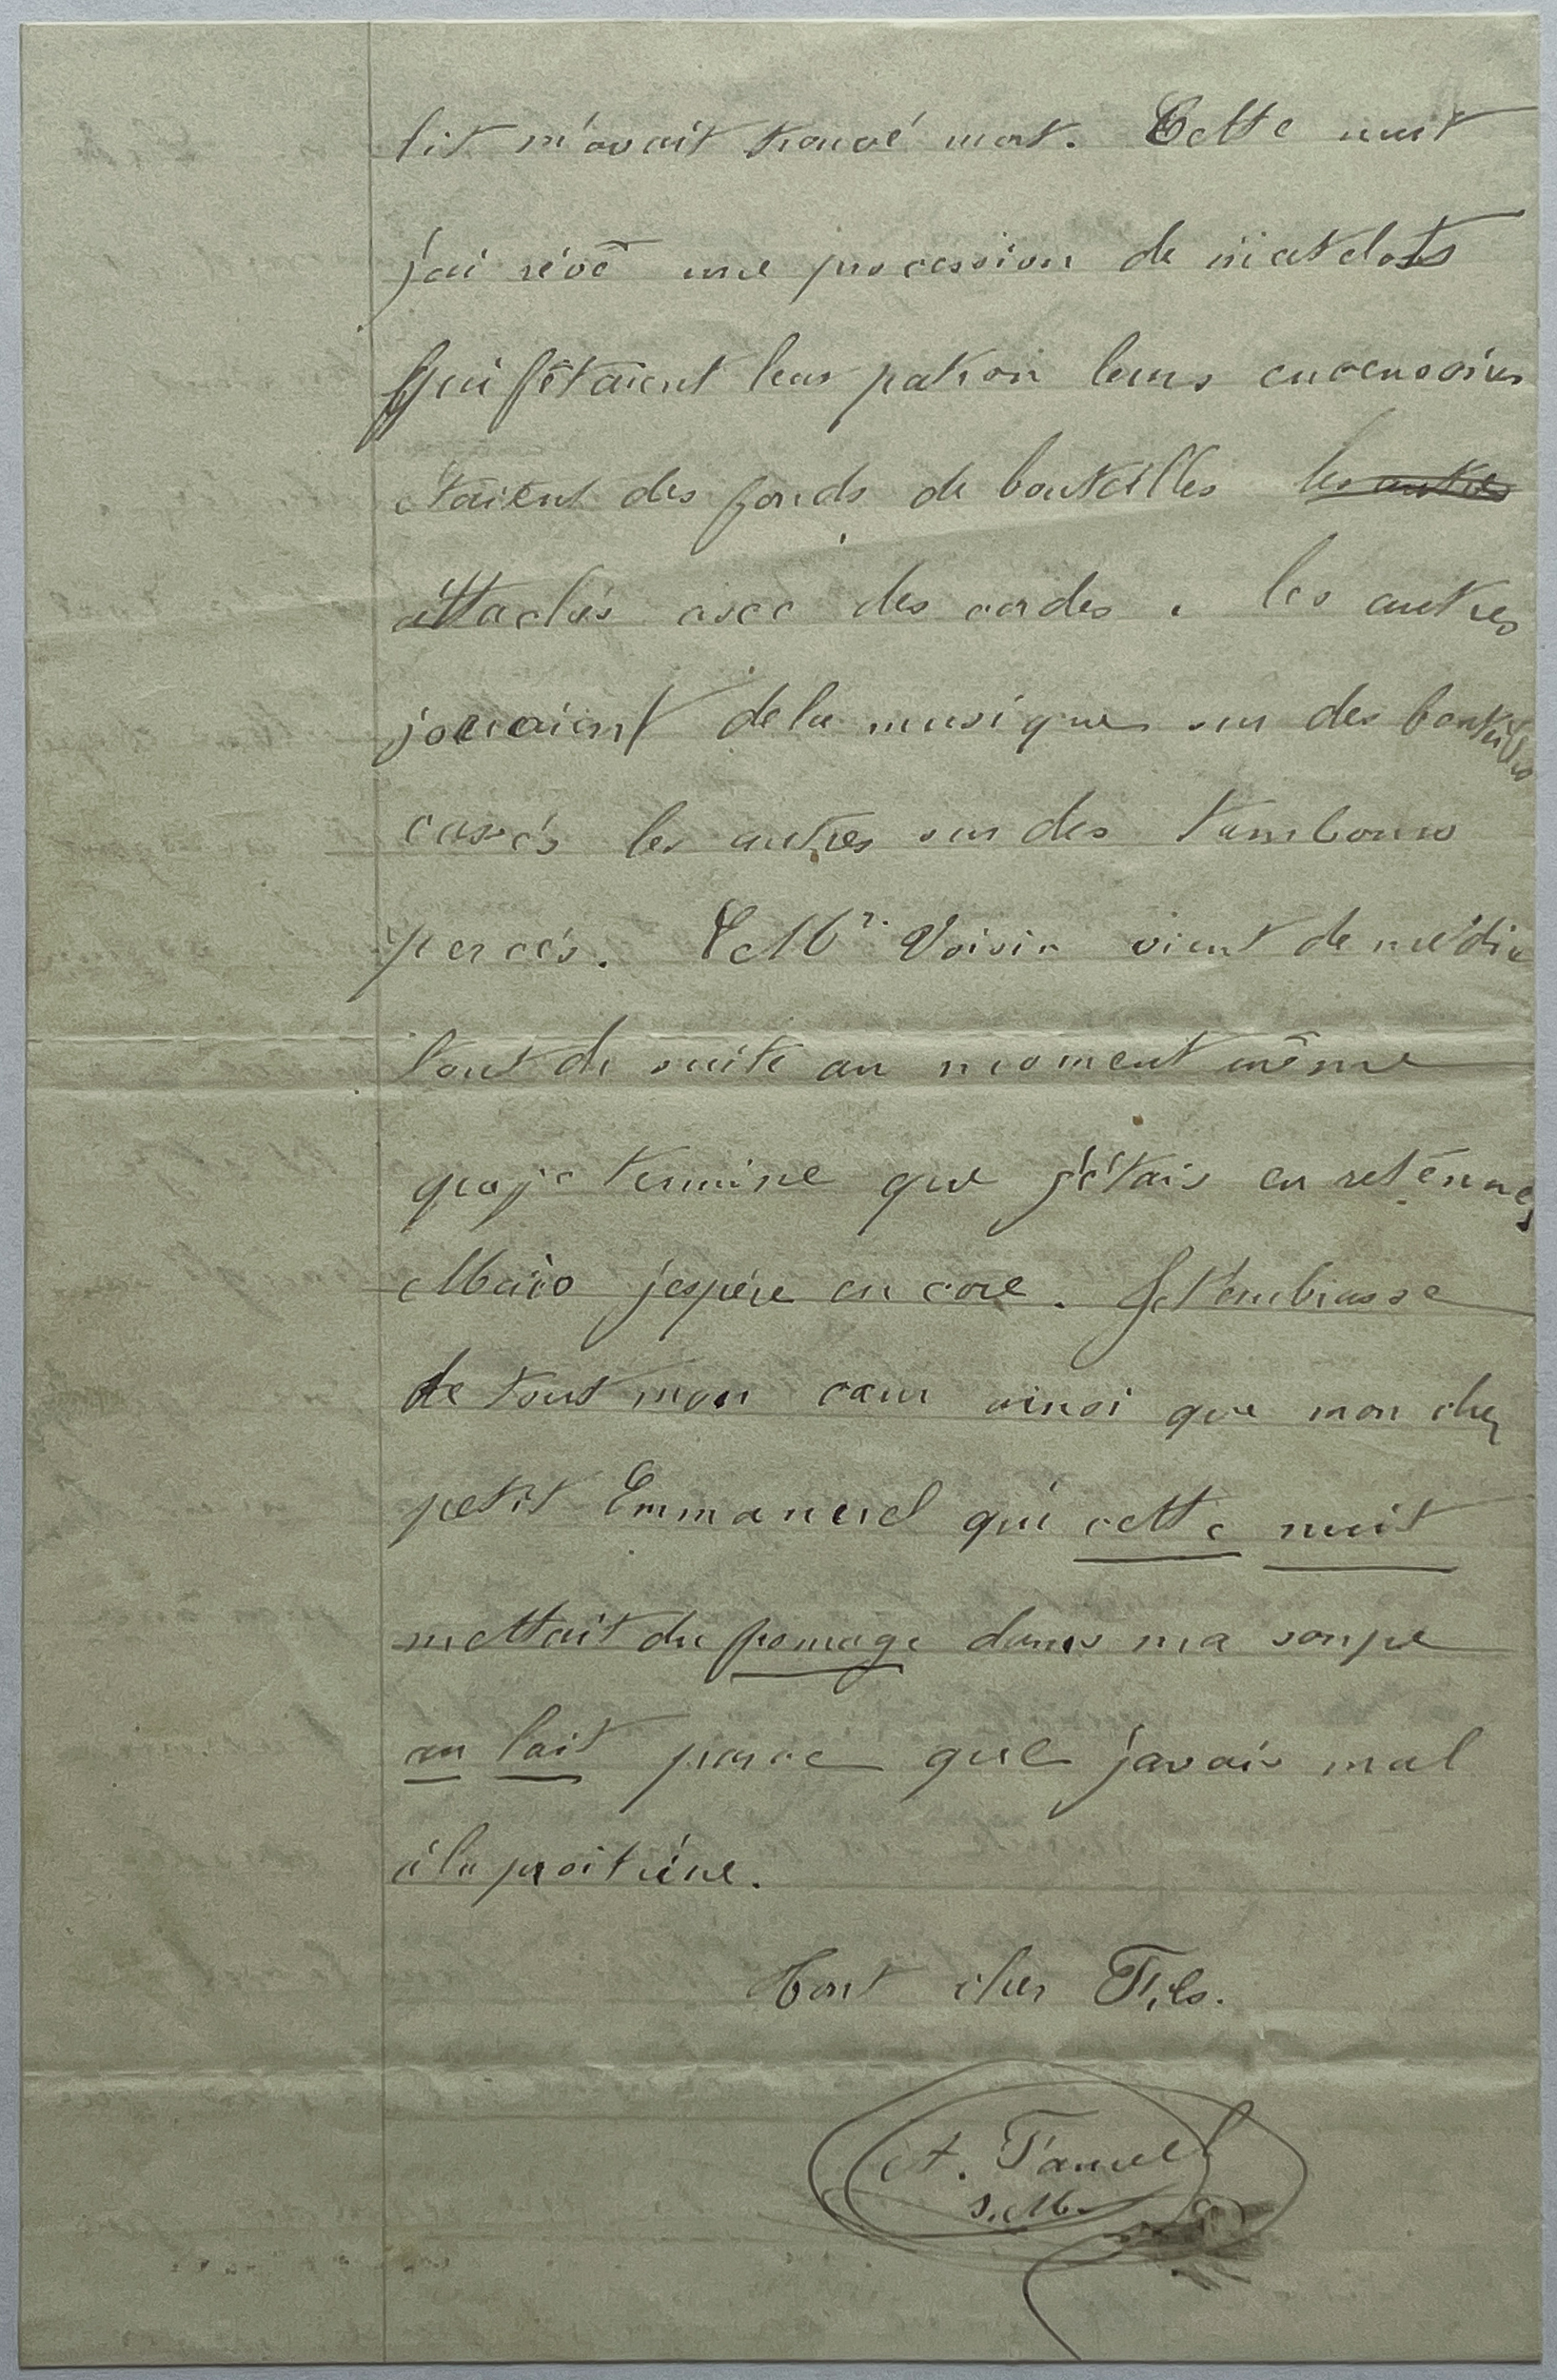 lit m'avait trouvé mort. Cette nuit
j'ai rêvé une procession de matelots
qui fêtaient leur patron leurs encensoirs
étaient des fonds de bouteilles les autres
attachés avec des cordes, les autres
jouaient de la musique sur des bouteilles
cassés les autres sur des tambours
percés. Mr. Voisin vient de me dire
tout de suite au moment même
que je termine que j'étais en retenue,
Mais j'espère encore. Je t'embrasse
de tout mon cœur ainsi que mon cher
petit Emmanuel qui cette nuit
mettait du fromage dans ma soupe
au lait parce que j'avais mal
à la poitrine.
Ton cher Fils.
A.
S. M.